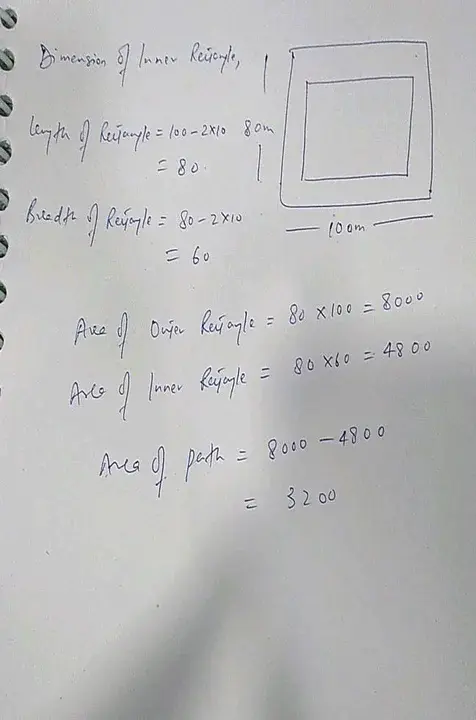 Dimension of Inner Rectangle,
Length of Rectangle = 100 - 2×10
80m
= 80.
Breadth of Rectangle = 80 - 2×10
100m
= 60
Area of Outer Rectangle = 80 × 100 = 8000
Area of Inner Rectangle = 80 × 60 = 4800
Area of path = 8000 - 4800
= 3200